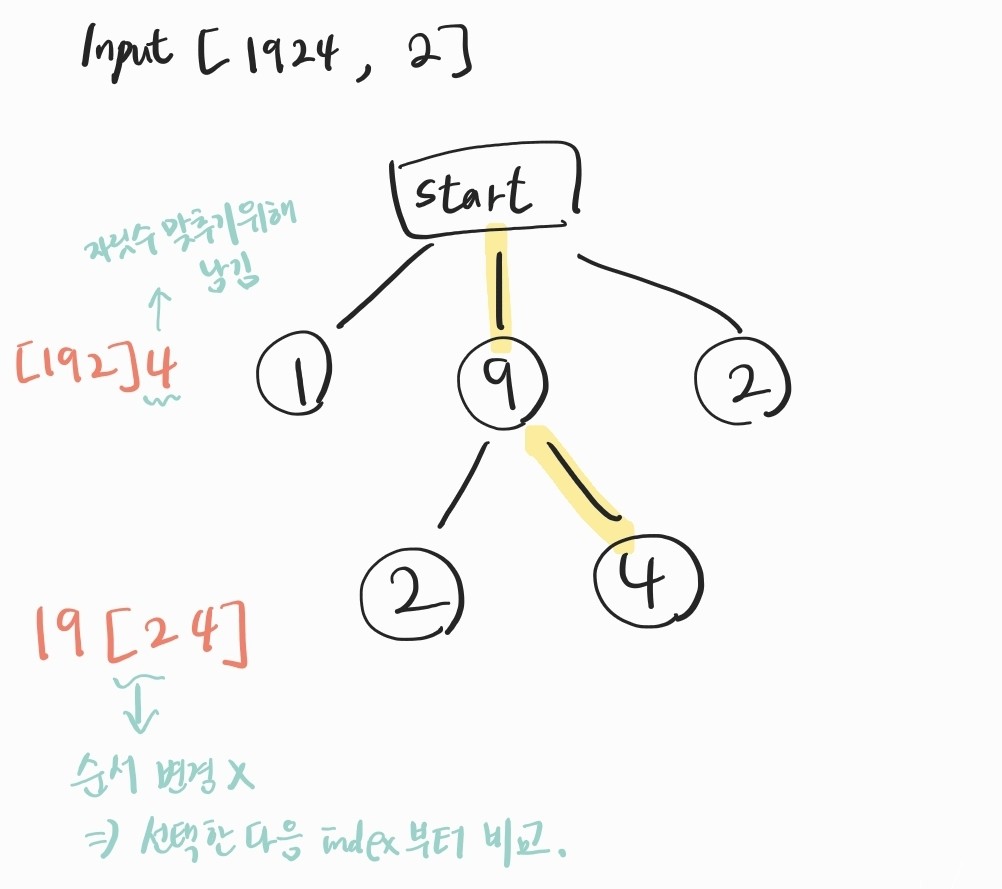 Input [1924, 2]
start
자릿수 맞추기위해
남김
[192]4
1
9
2
2
4
19[24]
순서 변경 X
=> 선택한 다음 index부터 비교.